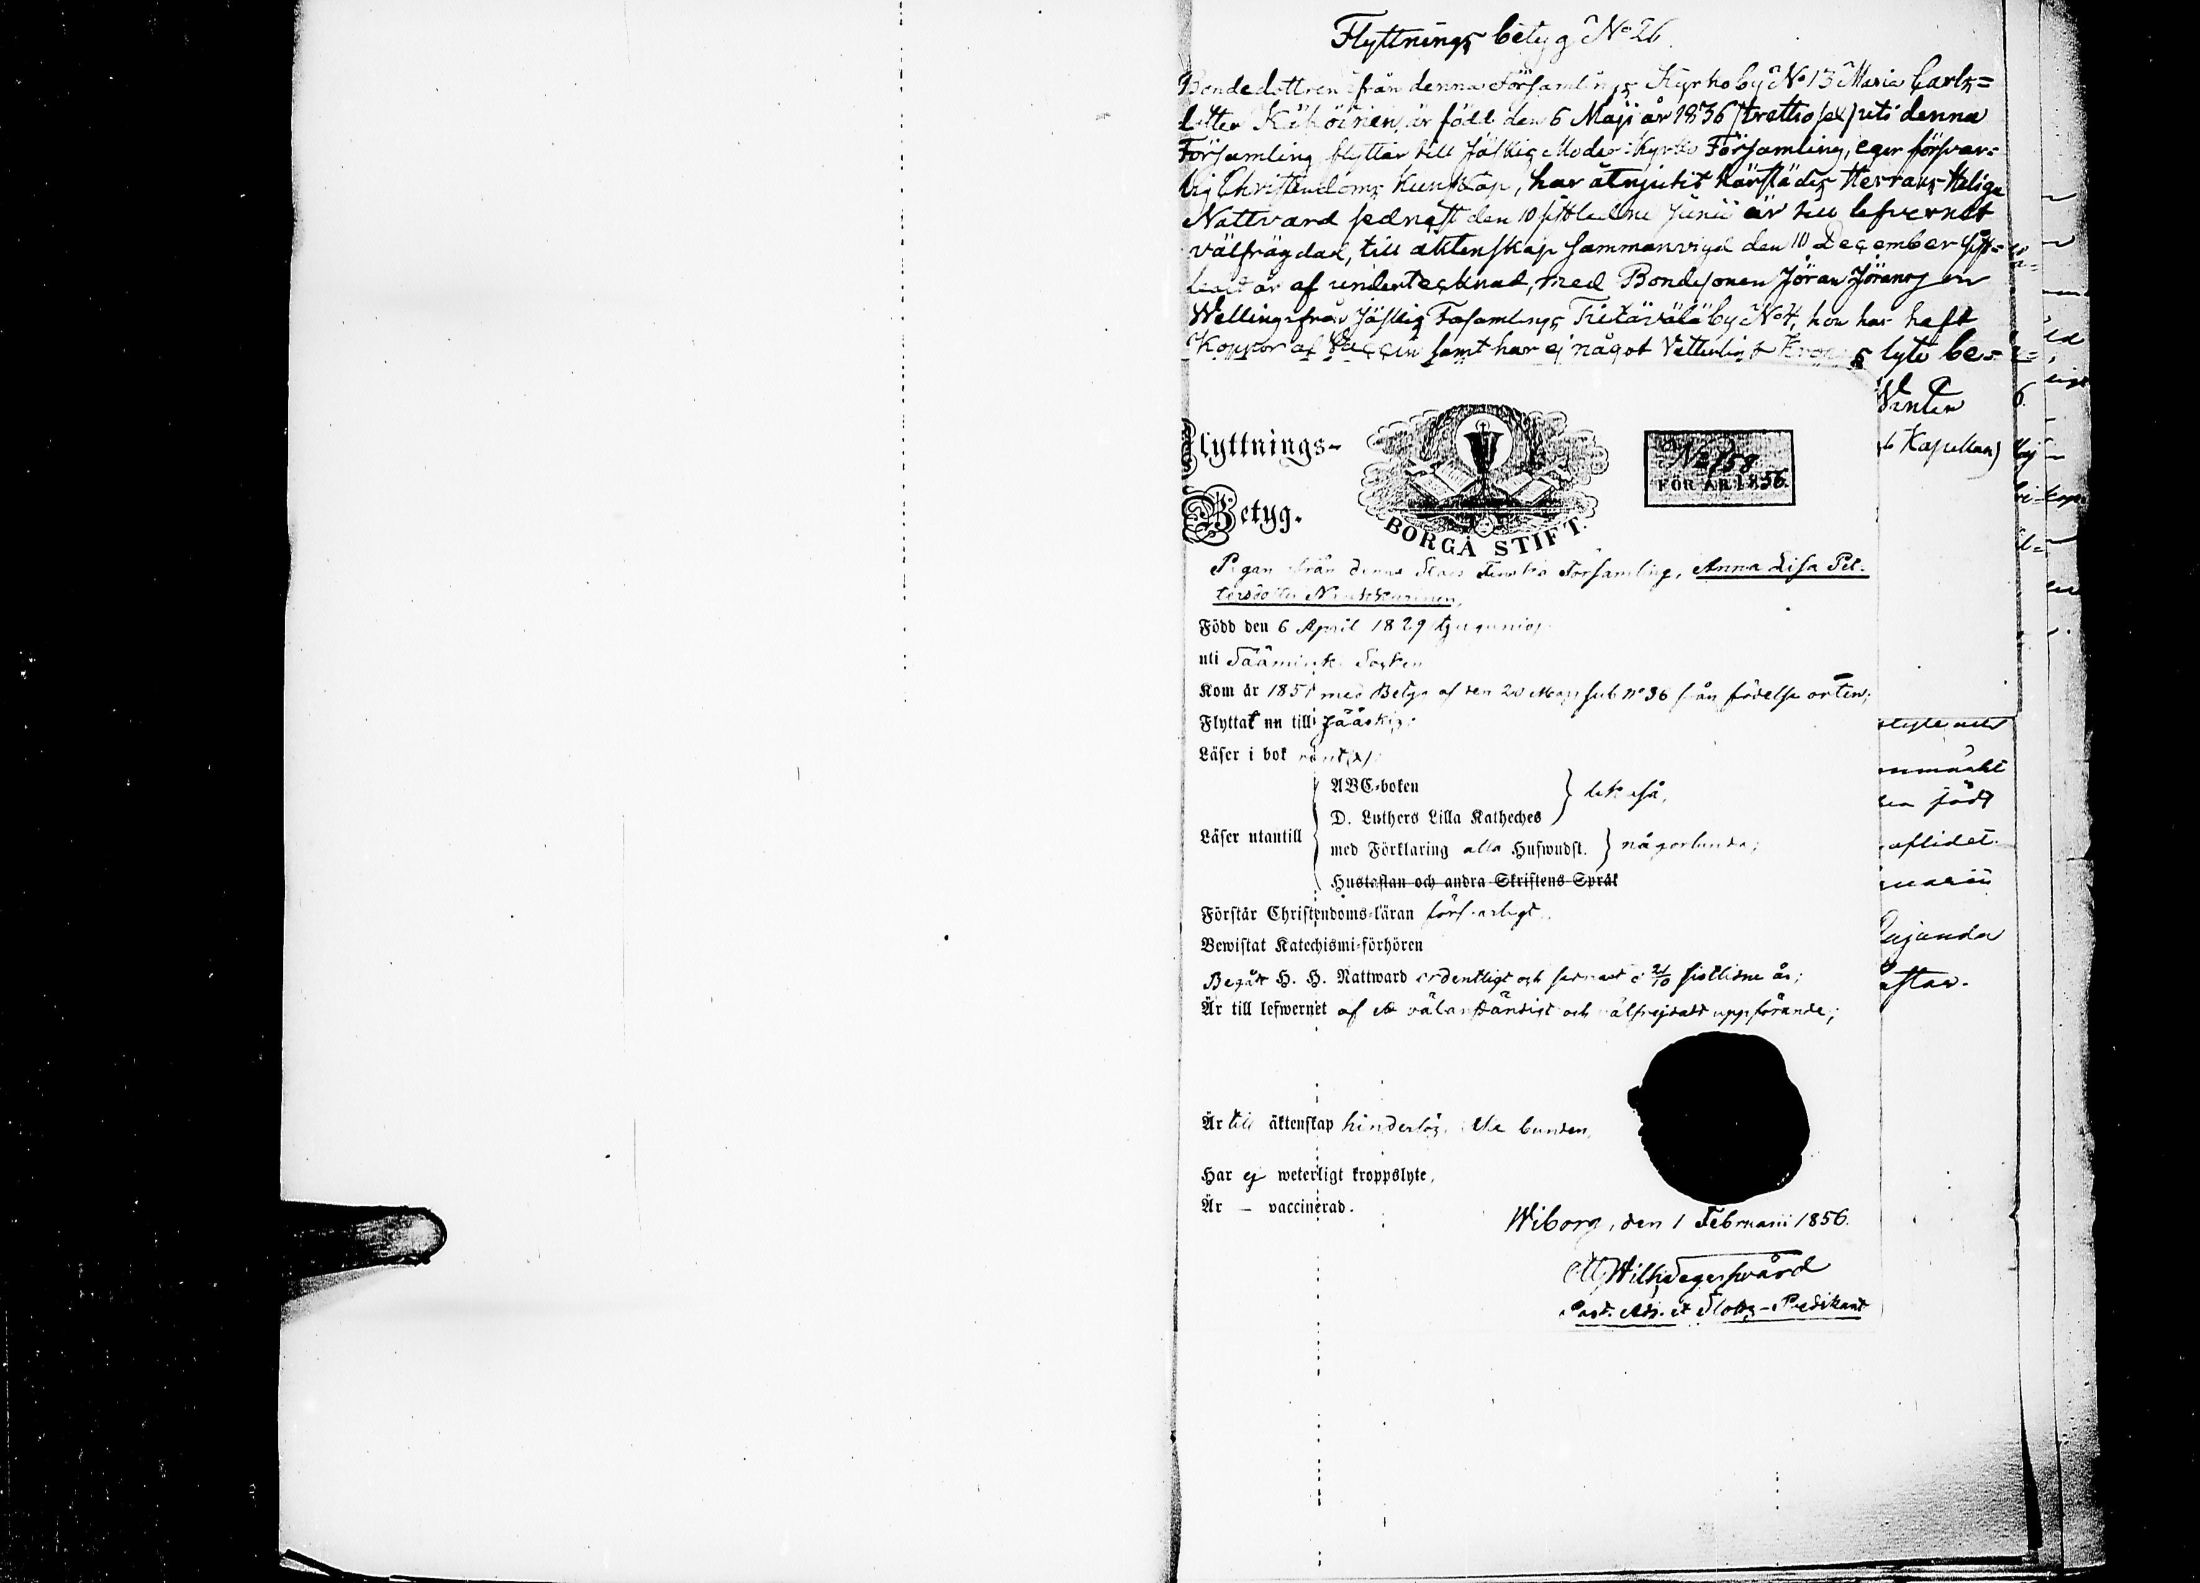 Flyttnings betyg No 26.
Bondedottren ifrån denna Församlings Kyrkoby No 13 Maria Carls=
dotter är född den 6 Maji år 1836 (trettiosex) uti denna
Församling flyttar till Jäskis Moder-Kyrko Församling, eger försvar=
lig Christendoms Kunskap, har åtnjutit härstädes Herrans Heliga
Nattvard sednast den 10 sistledne Junii är till lefvernet
välfrägdad, till äktenskap sammanvigd den 10 December sist=
ledit år af undertecknad, med Bondesonen Jöran Jöransson
Welling från Jäskis Församlings by No 4, hon har haft
Koppor af Vaccin samt har ej något Vetterligt Kropps lyte be=
Flyttnings-
Betyg.
BORGÅ STIFT.
No 158
FÖR ÅR 1856.
Pigan från denna Finska Församling, Anna Lisa Pet-
tersdotter
Född den 6 April 1829 tjugunio,
uti Sääminki Socken
Kom år 1851 med Betyg af den Maji sub No 36 från födelse orten;
Flyttat nu till Jääskis;
Läser i bok
ABC-boken
D. Luthers Lilla Katheches
} likaså,
Läser utantill
med Förklaring alla Hufwudst. } någorlunda;
Hustaflan och andra Skriftens Språk
Förstår Christendoms-läran försvarligt.
Bewistat Katechismi-förhören
Begått H. H. Nattward ordentligt och sednast d 21/10 sistlidne år;
Är till lefwernet af ett välanständigt och välfrejdadt uppförande;
Är till äktenskap hinderlös, bunden,
Har ej weterligt kroppslyte,
Är – vaccinerad.
Wiborg, den 1 Februarii 1856.
Otto Wilh. Segerswärd
Past. Adj. et Slotts-Predikant
Kapellan)
född
aflidet